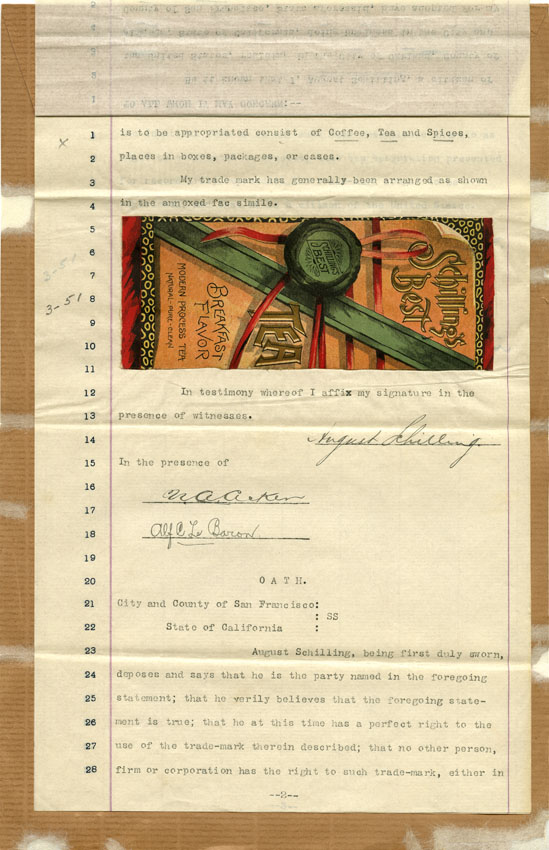 1 TO ALL WHOM IT MAY CONCERN:--
x
1 is to be appropriated consist of Coffee, Tea and Spices,
2 places in boxes, packages, or cases.
3 My trade mark has generally been arranged as shown
4 in the annexed fac simile.
5
6
7
8
9
10
11
3-51
3-51
MODERN PROCESS TEA
NATURAL-PURE-CLEAN
BREAKFAST
FLAVOR
TEA
SCHILLING'S
BEST
Schilling's
Best
12 In testimony whereof I affix my signature in the
13 presence of witnesses.
14 August Schilling
15 In the presence of
16
17
18 Alf C Le Baron
19
20 OATH.
21 City and County of San Francisco:
: SS
22 State of California :
23 August Schilling, being first duly sworn,
24 deposes and says that he is the party named in the foregoing
25 statement; that he verily believes that the foregoing state-
26 ment is true; that he at this time has a perfect right to the
27 use of the trade-mark therein described; that no other person,
28 firm or corporation has the right to such trade-mark, either in
--2--